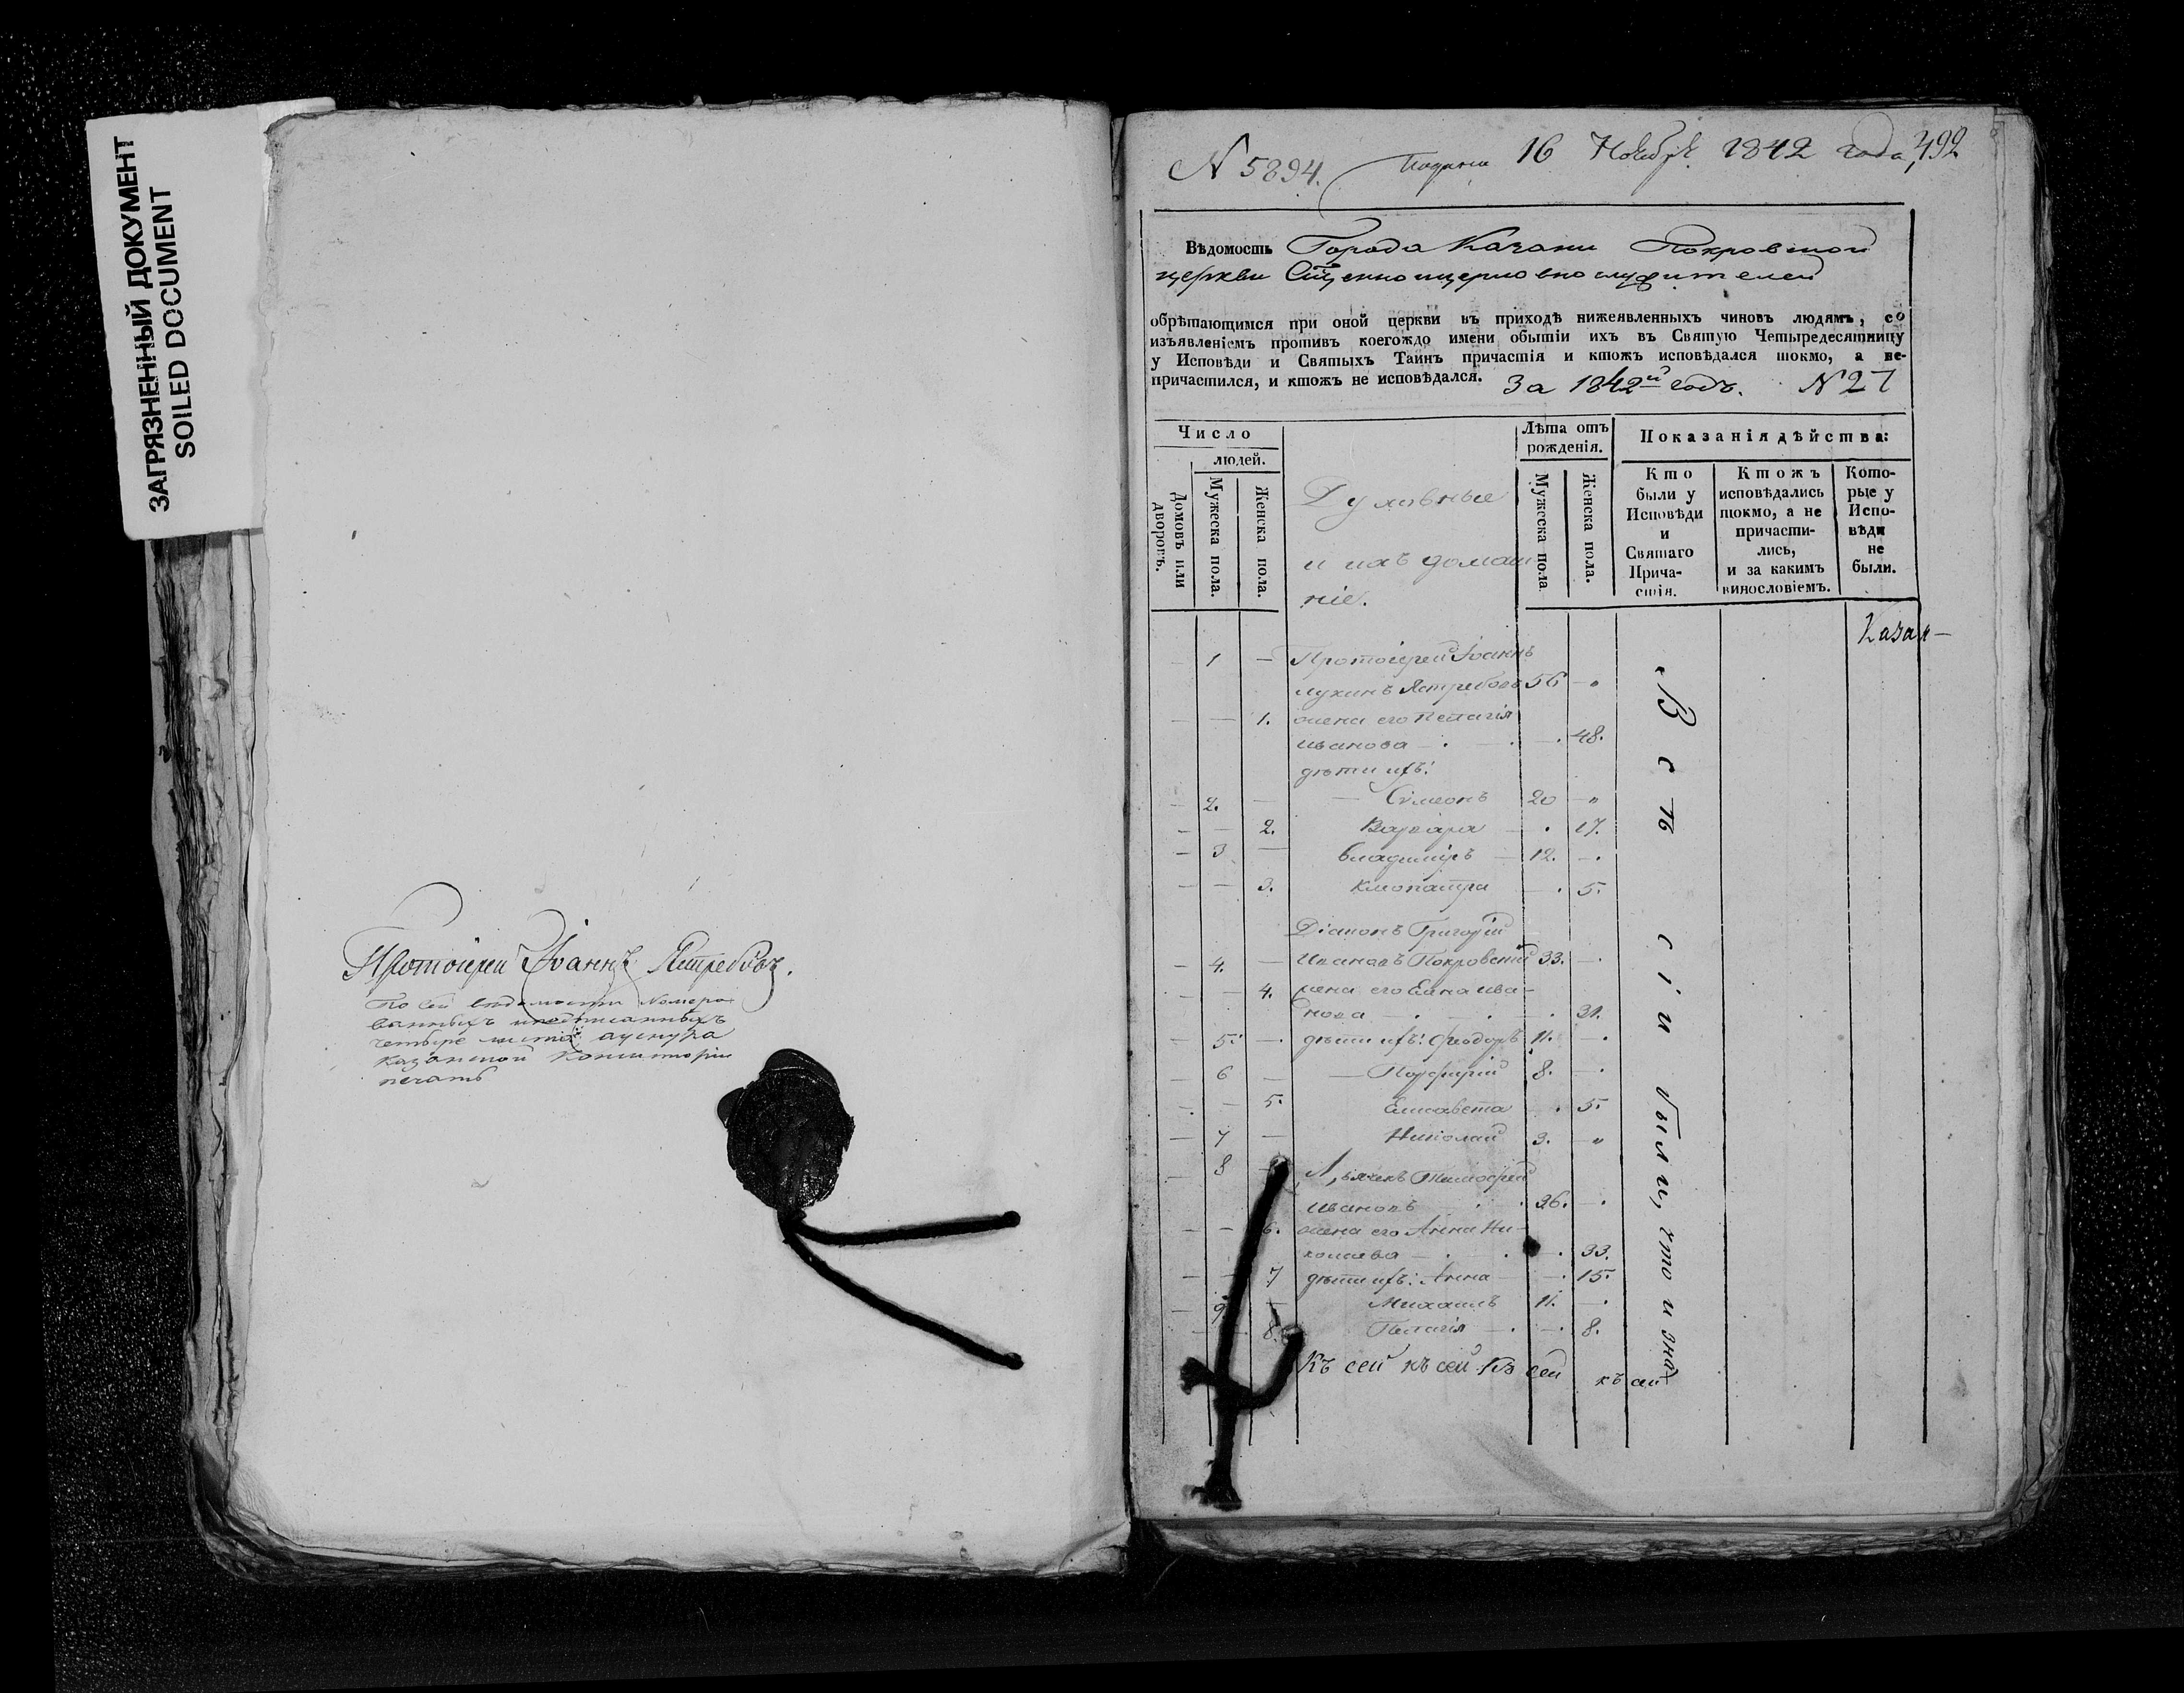 ЗАГРЯЗНЕННЫЙ ДОКУМЕНТ
SOILED DOCUMENT
Протоіерей Іоаннъ Ястребовъ.
По сей ведомости Номеро-
ванныхъ
четыре листа
Казанской Консисторіи
печать
N 5894. Подана 16 Ноября 1842 года 492
Вѣдомость Города Казани Покровской
церкви Сщенноицерковнослужителей
обрѣтающимся при оной церкви въ приходѣ нижеявленныхъ чиновъ людямъ, со
изъявленіемъ противъ коегождо имени обытіи ихъ въ Святую Четыредесятницу
у Исповѣди и Святыхъ Таинъ причастія и ктожъ исповѣдался токмо, а не-
причастился, и ктожъ не исповѣдался. За 1842й годъ. N 27
Число
людей.
Домовъ или дворовъ.
Мужеска пола.
Женска пола.
Духовные
и ихъ домаш
ніе.
Лѣта отъ
рожденія.
Мужеска пола
Женска пола.
Показанія дѣйства:
Кто
были у
Исповѣди
и
Святаго
Прича-
стія.
Ктожъ
исповѣдались
токмо, а не
причасти-
лись,
и за какимъ
винословіемъ.
Кото-
рые у
Испо-
вѣди
не
были.
Казан-
1 — Протоіерей Іоаннъ
Лукинъ Ястребовъ 56 — "
— 1. жена его Пелагія
Иванова — . — . 48.
дѣти ихъ:
2. — Симеонъ 20 — "
— 2. Варвара — . 17.
3 — Владиміръ — 12. — .
— 3. Клеопатра — . 5.
Діаконъ Григорій
4. — Ивановъ Покровскій 33. — .
— 4. жена его Елена Ива-
нова . . . 31.
5. — дѣти ихъ: Феодоръ 11. — .
6 — Порфирій 8. — .
— 5. Елисавета . 5.
7 — Николай 3. — "
8 — Дьячекъ Тимофей
Ивановъ . 36. — .
— 6. жена его Анна Ни-
колаева — . — . 33.
— 7 дѣти ихъ: Анна — . 15.
9 — Михаилъ 11. — .
— 8. Пелагія — . — . 8.
Къ сей къ сей къ сей къ сей
Всѣ сіи были, что и